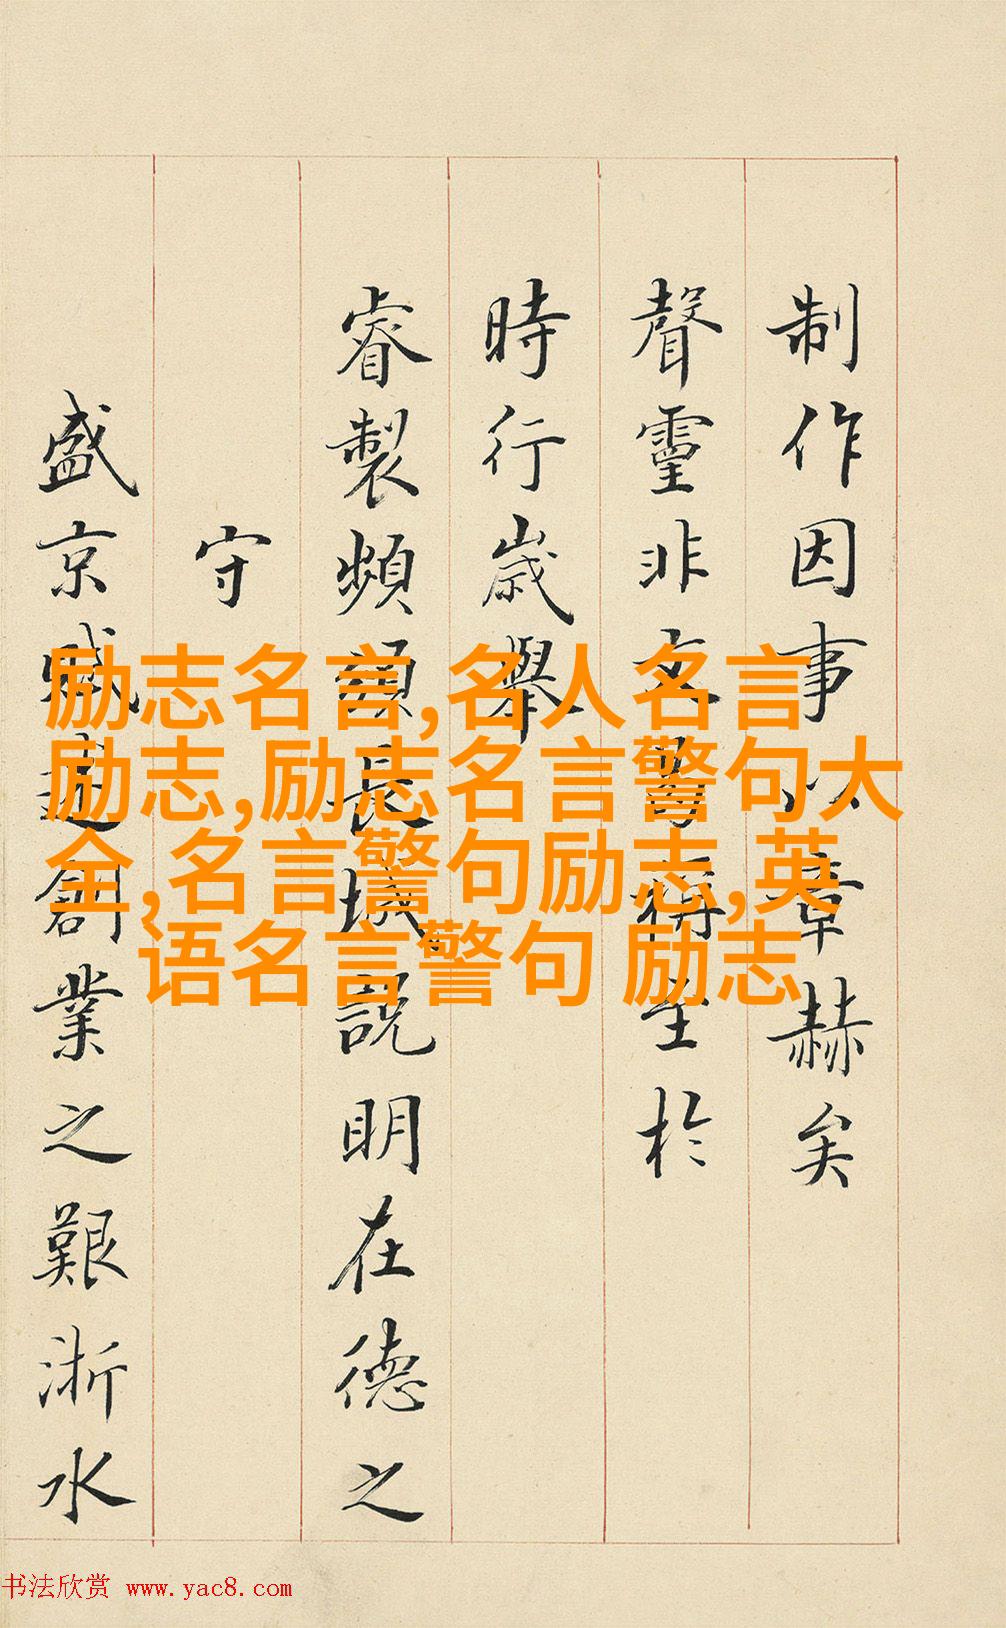 制作因事以章赫矣
聲靈非文曷稱至於
時行歲舉
睿製頻頒長城説明在德之
守
盛京賦述創業之艱浙水
励志名言,名人名言
励志,励志名言警句大
全,名言警句励志,英
语名言警句 励志
书法欣赏 www.yac8.com